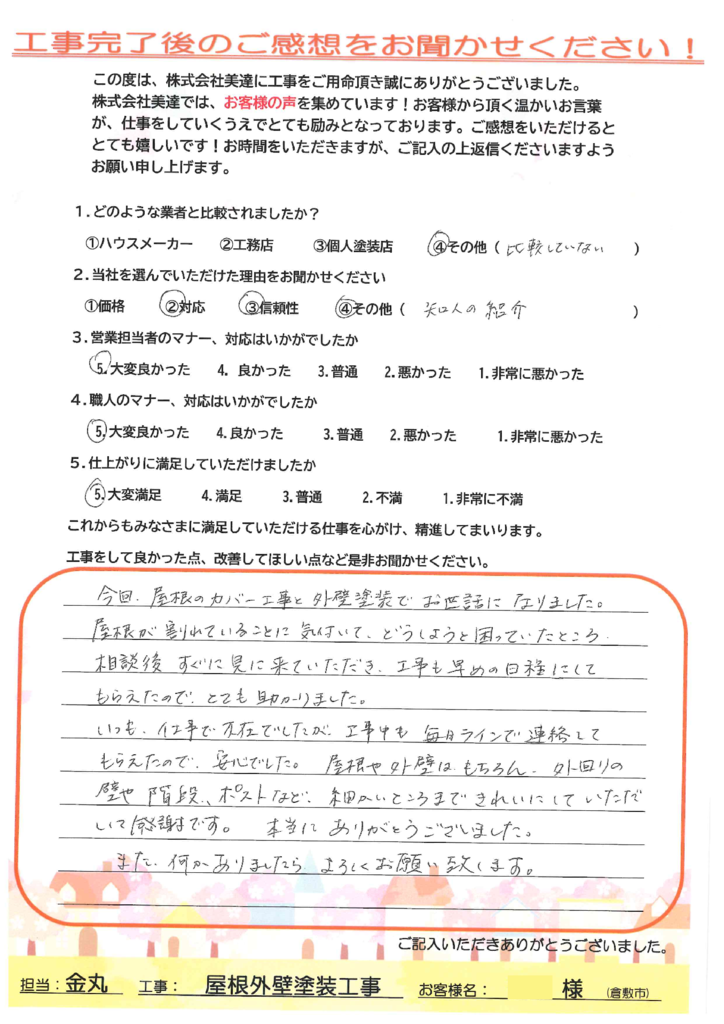 工事完了後のご感想をお聞かせください！
この度は、株式会社美達に工事をご用命頂き誠にありがとうございました。
株式会社美達では、お客様の声を集めています！お客様から頂く温かいお言葉
が、仕事をしていくうえでとても励みとなっております。ご感想をいただけると
とても嬉しいです！お時間をいただきますが、ご記入の上返信くださいますよう
お願い申し上げます。
１．どのような業者と比較されましたか？
①ハウスメーカー ②工務店 ③個人塗装店 ④その他（比較していない ）
２．当社を選んでいただけた理由をお聞かせください
①価格 ②対応 ③信頼性 ④その他（ 知人の紹介 ）
３．営業担当者のマナー、対応はいかがでしたか
5.大変良かった 4．良かった 3.普通 2.悪かった 1.非常に悪かった
４．職人のマナー、対応はいかがでしたか
5.大変良かった 4.良かった 3.普通 2.悪かった 1.非常に悪かった
５．仕上がりに満足していただけましたか
5.大変満足 4.満足 3.普通 2.不満 1.非常に不満
これからもみなさまに満足していただける仕事を心がけ、精進してまいります。
工事をして良かった点、改善してほしい点など是非お聞かせください。
今回、屋根のカバー工事と外壁塗装でお世話になりました。
屋根が割れていることに気付いて、どうしようと困っていたところ、
相談後すぐに見に来ていただき、工事も早めの日程にして
もらえたので、とても助かりました。
いつも、仕事で不在でしたが、工事中も毎日ラインで連絡して
もらえたので、安心でした。 屋根や外壁はもちろん、外回りの
壁や階段、ポストなど、細かいところまできれいにしていただ
いて感謝です。 本当にありがとうございました。
また、何かありましたら、よろしくお願い致します。
ご記入いただきありがとうございました。
担当：金丸 工事： 屋根外壁塗装工事 お客様名： 様 （倉敷市）